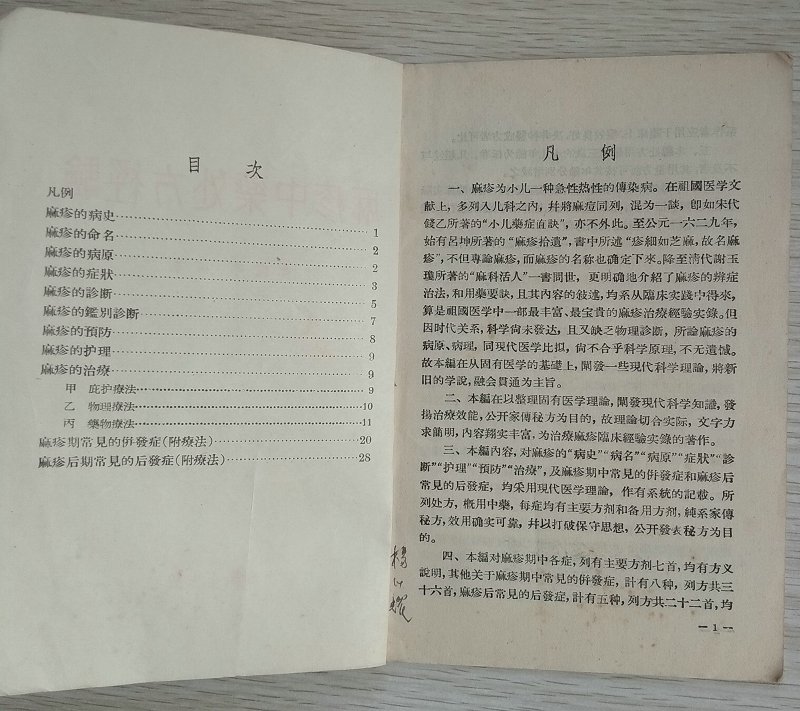 目 次
凡例
麻疹的病史……1
麻疹的命名……2
麻疹的病原……2
麻疹的症狀……3
麻疹的診断……5
麻疹的鑑别診断……7
麻疹的預防……8
麻疹的护理……9
麻疹的治療……9
甲 庇护療法……9
乙 物理療法……10
丙 藥物療法……11
麻疹期常見的倂發症(附療法)……20
麻疹后期常見的后發症(附療法)……28
凡 例
一、麻疹为小儿一种急性热性的傳染病。在祖國医学文
献上，多列入儿科之内，幷將麻痘同列，混为一談，卽如宋代
錢乙所著的“小儿藥症直訣”，亦不外此。至公元一六二九年，
始有呂坤所著的“麻疹拾遺”，書中所述“疹細如芝麻，故名麻
疹”，不但專論麻疹，而麻疹的名称也确定下來。降至淸代謝玉
瓊所著的“麻科活人”一書同世，更明确地介紹了麻疹的辨症
治法，和用藥要訣，且其內容的敘述，均系从臨床实踐中得來，
算是祖國医学中一部最丰富、最宝貴的麻疹治療經驗实錄。但
因时代关系，科学尙未發达，且又缺乏物理診断，所論麻疹的
病原、病理，同現代医学比拟，尙不合乎科学原理，不无遺憾。
故本編在从固有医学的基礎上，闡發一些現代科学理論，將新
旧的学說，融会貫通为主旨。
二、本編在以整理固有医学理論，闡發現代科学知識，發
揚治療效能，公开家傳秘方为目的，故理論切合实际，文字力
求簡明，內容翔实丰富，为治療麻疹臨床經驗实錄的著作。
三、本編內容，对麻疹的“病史”“病名”“病原”“症狀”“診
断”“护理”“預防”“治療”，及麻疹期中常見的倂發症和麻疹后
常見的后發症，均采用現代医学理論，作有系統的記載。所
列处方，概用中藥，每症均有主要方剂和备用方剂，純系家傳
秘方，效用确实可靠，幷以打破保守思想，公开發表秘方为目
的。
四、本編对麻疹期中各症，列有主要方剂七首，均有方义
說明，其他关于麻疹期中常見的倂發症，計有八种，列方共三
十六首，麻疹后常見的后發症，計有五种，列方共二十二首，均
— 1 —